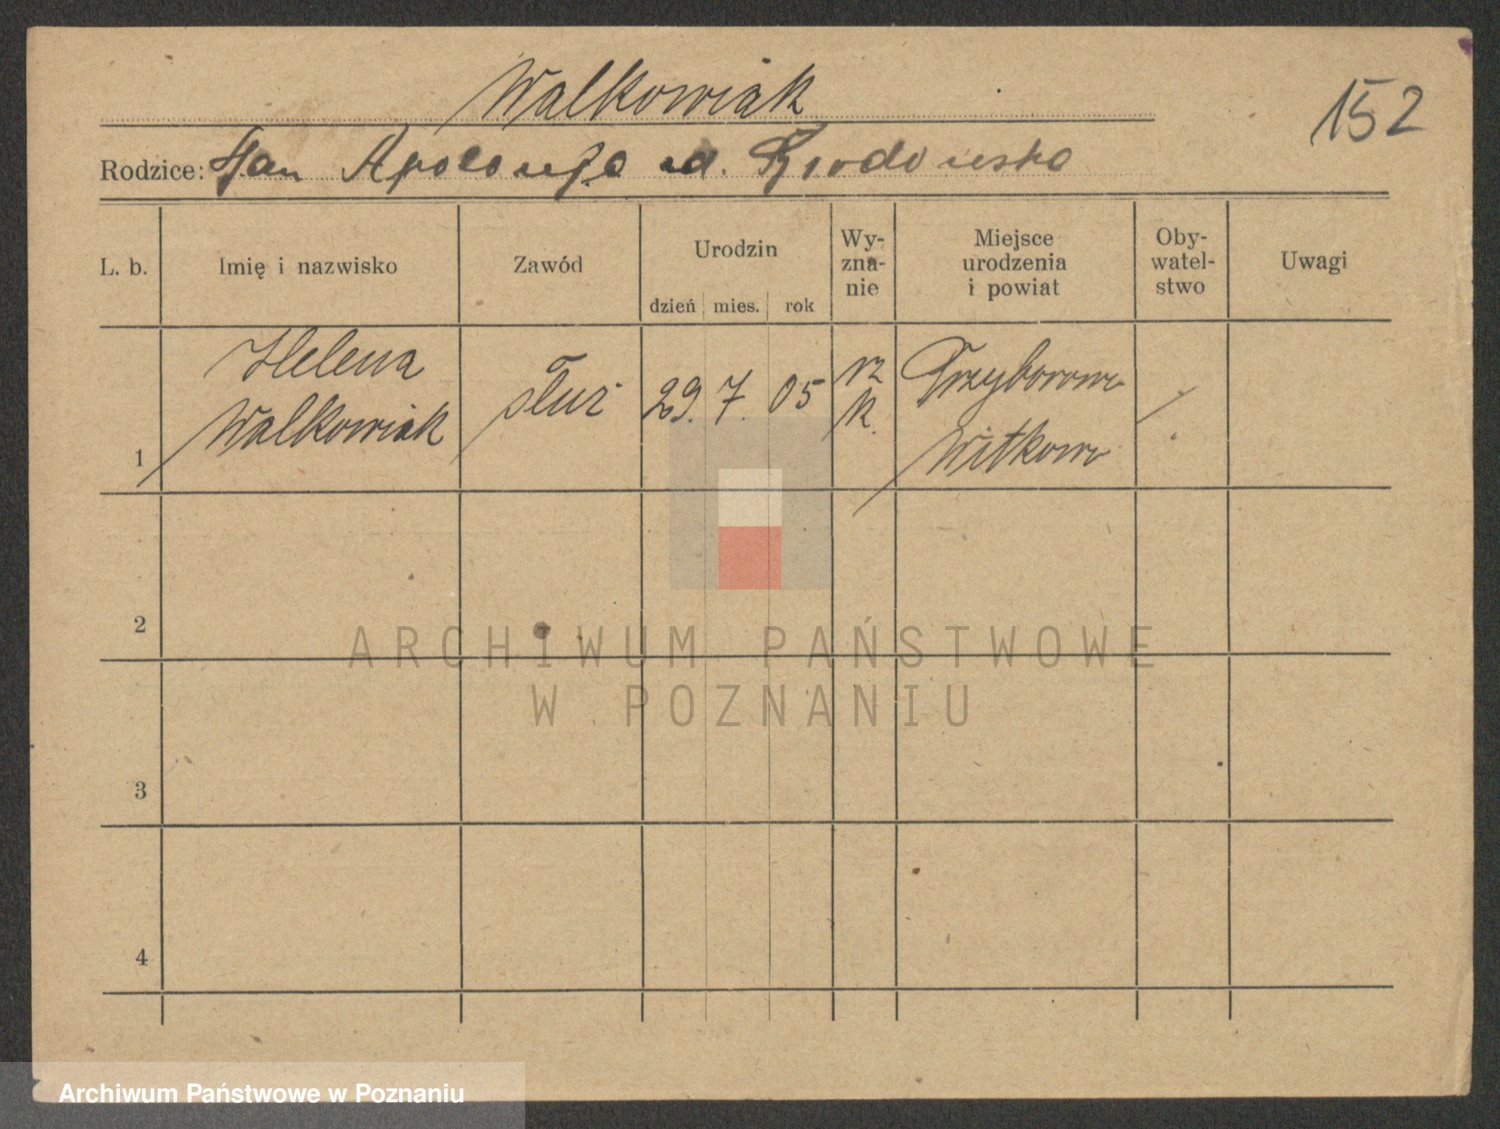 Walkowiak
152
Rodzice: Jan Apolonja
L. b.
Imię i nazwisko
Zawód
Urodzin
dzień mies. rok
Wy-
zna-
nie
Miejsce
urodzenia
i powiat
Oby-
watel-
stwo
Uwagi
1
Helena
Walkowiak
służ
29. 7. 05
rz
k.
Przyborowo
Witkowo
2
3
4
ARCHIWUM PAŃSTWOWE
W POZNANIU
Archiwum Państwowe w Poznaniu